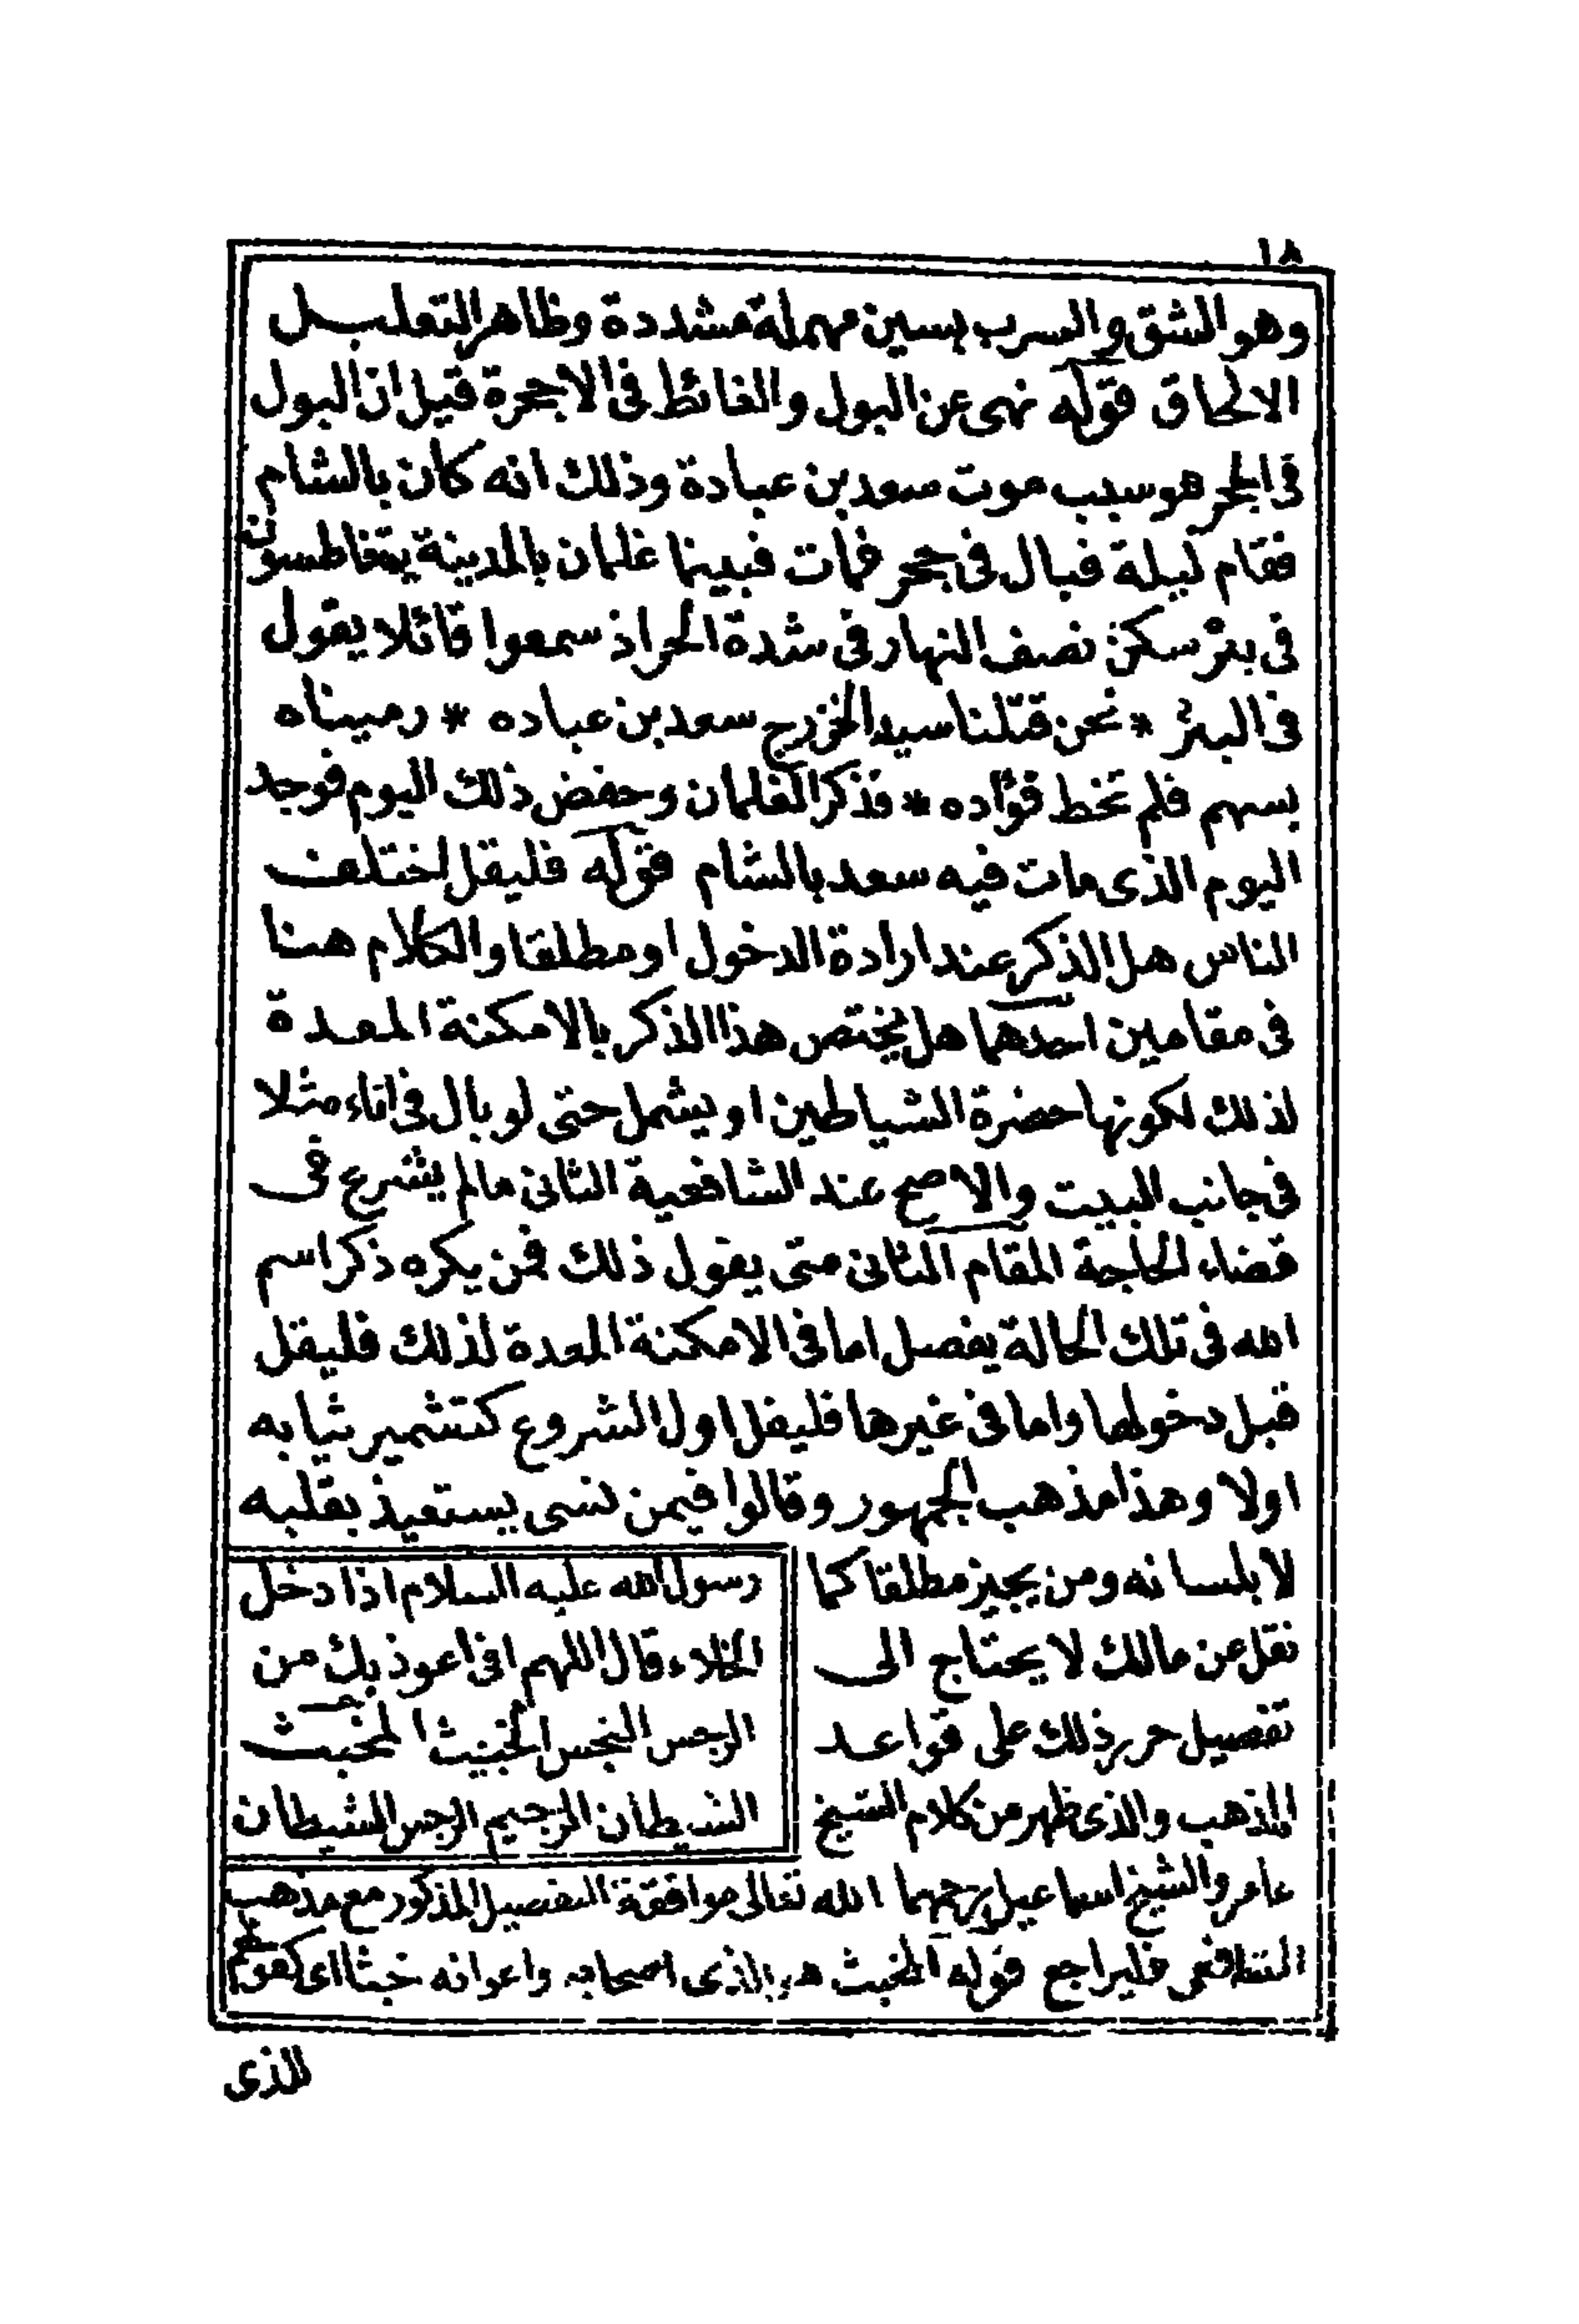 ١٨
وهو الشق والسرب بسين مهملة مشددة وظاهر التعليل
الالحاق قوله نهى عن البول والغائط فى الاجحرة قيل ان البول
فى الجحر هو سبب موت سعد بن عبادة وذلك انه كان بالشام
فقام ليلة فبال فى جحر فمات فبينما غلمان بالمدينة يتغاطسون
فى بئر سكن نصف النهار فى شدة الحر اذ سمعوا قائلا يقول
فى البئر * نحن قتلنا سيد الخزرج سعد بن عباده * رميناه
بسهم فلم تخط فؤاده * فذكر الغلمان وحفض ذلك اليوم فوجد
اليوم الذى مات فيه سعد بالشام قوله فليقل اختلف
الناس هل الذكر عند ارادة الدخول او مطلقا والكلام هنا
فى مقامين احدهما هل يختص هذا الذكر بالامكنة المعدة
لذلك لكونها حضرة الشياطين او يشمل حتى لو بال فى اناء مثلا
فى جانب البيت والاصح عند الشافعية الثانى مالم يشرع فى
قضاء الحاجة المقام الثانى متى يقول ذلك فمن يكره ذكر اسم
الله فى تلك الحالة يفصل اما فى الامكنة المعدة لذلك فليقل
قبل دخولها واما فى غيرها فليقل اول الشروع كتشمير ثيابه
اولا وهذا مذهب الجمهور وقالوا فيمن نسى يستعيذ بقلبه
لا بلسانه ومن يجيز مطلقا كما
نقل عن مالك لا يحتاج الى
تفصيل حرر ذلك على قواعد
المذهب والذى ظهر من كلام الشيخ
رسول الله عليه السلام اذا دخل
الخلاء قال اللهم انى اعوذ بك من
الرجس النجس الخبيث المخبث
الشيطان الرجيم الرجس الشيطان
عامر والشيخ اسماعيل رحمهما الله تعالى موافقة التفصيل المذكور مع مذهب
الشافعى فليراجع قوله المخبث هو الذى اصحابه واعوانه خبثا اى كقولهم
للذى